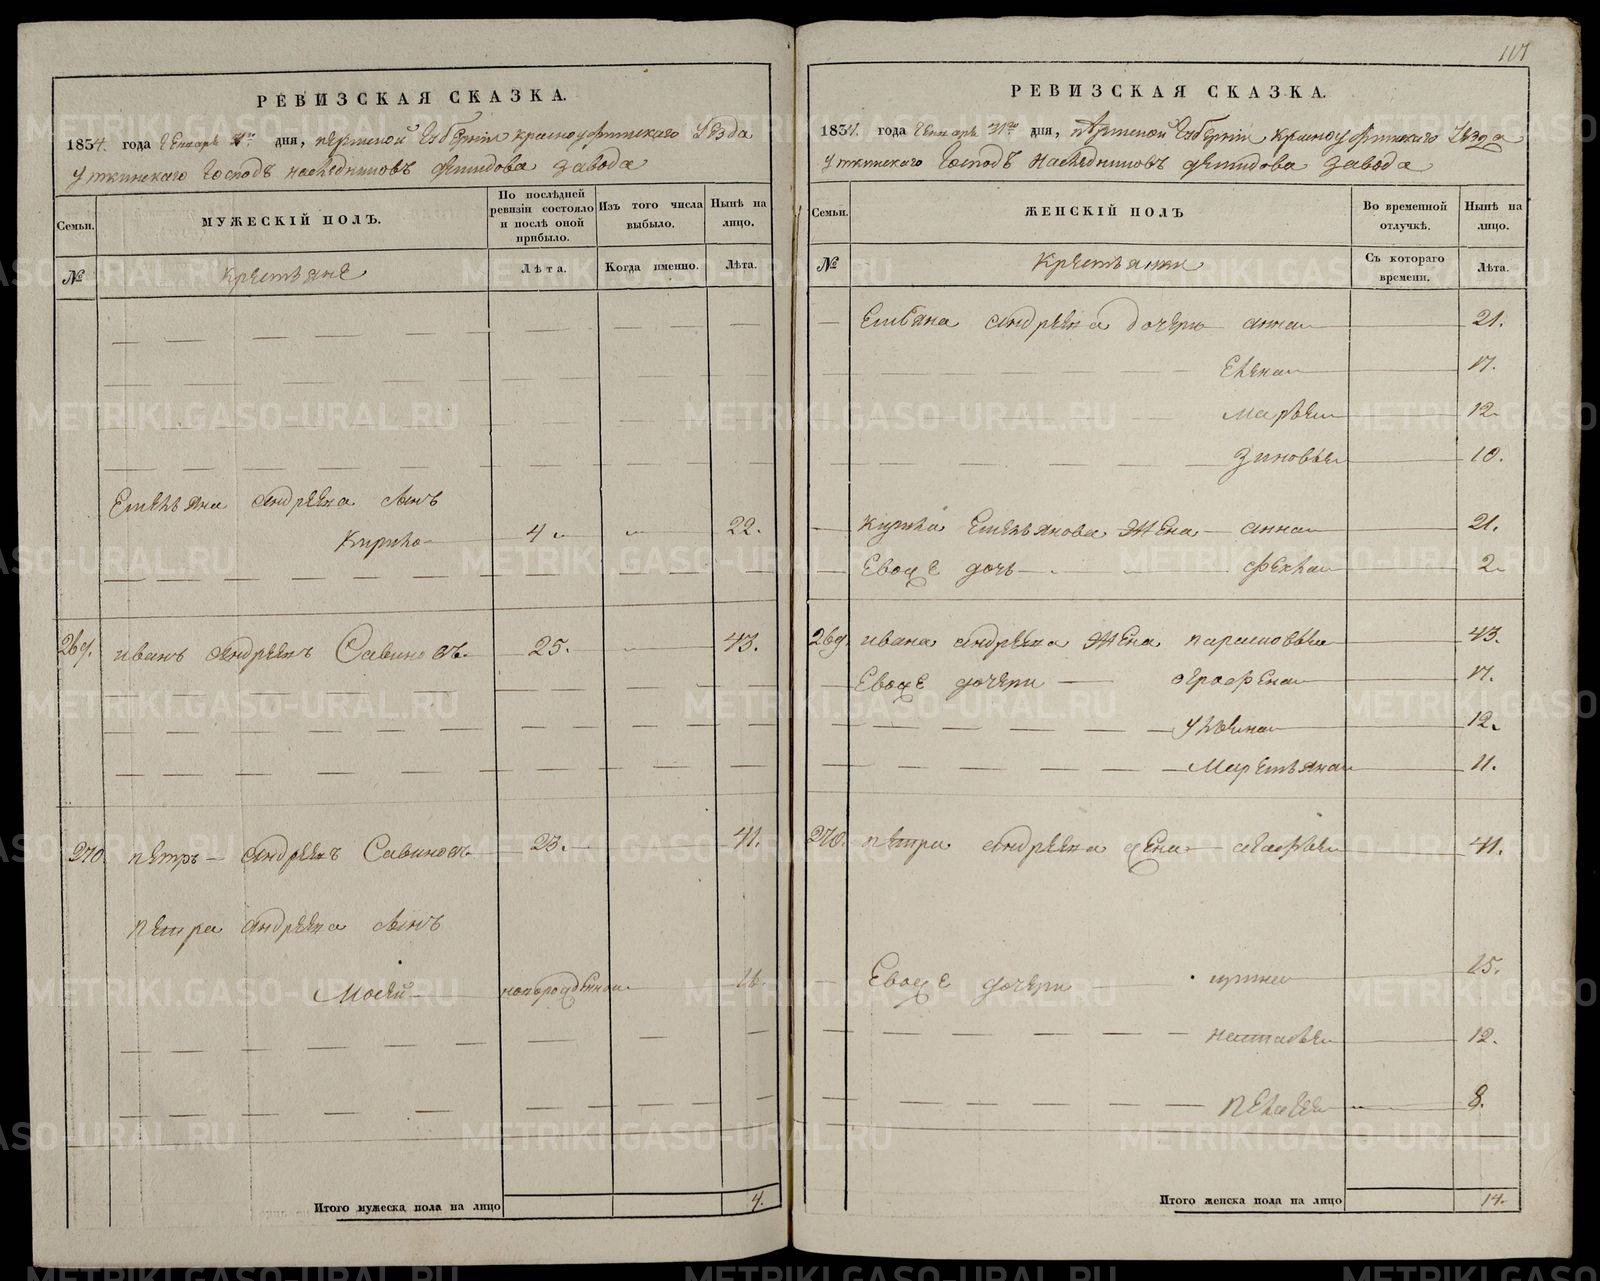 РЕВИЗСКАЯ СКАЗКА.
1834. года Генваря дня, Пермской Губернiи Красноуфимскаго Уезда
Уткинскаго Господъ наследниковъ Демидова завода
Семьи.
МУЖЕСКIЙ ПОЛЪ.
По послѣдней ревизiи состояло и послѣ оной прибыло.
Изъ того числа выбыло.
Нынѣ на лицо.
№
Крестьяне
Лѣта.
Когда именно.
Лѣта.
Емельяна Андреева сынъ
Кирило 4 22.
269. Иванъ Андреевъ Савиновъ. 25. 43.
270. Петръ Андреевъ Савиновъ. 23. 41.
Петра Андреева сынъ
Мосей новорожденной 16.
Итого мужеска пола на лицо 4.
117
РЕВИЗСКАЯ СКАЗКА.
1834. года Генваря 31го дня, Пермской Губернiи Красноуфимскаго Уезда
Уткинскаго Господъ Наследниковъ Демидова завода
Семьи.
ЖЕНСКIЙ ПОЛЪ
Во временной отлучкѣ.
Нынѣ на лицо.
№
Крестьянки
Съ котораго времени.
Лѣта.
Андреева дочери Анна 21.
Елена 17.
Марья 12.
Зиновья 10.
Кирила Емельянова жена Анна 21.
Евоже дочь Фекла 2
269. Ивана Андреева жена Парасковья 43.
Евоже дочери Аграфена 17.
Ульяна 12.
Маремьяна 11.
270. Петра Андреева жена Агафья 41.
Евоже дочери Ирина 15.
Наталья 12.
Пелагея 8.
Итого женска пола на лицо 14.
METRIKI.GASO-URAL.RU